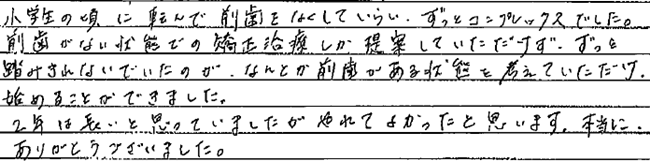 小学生の頃に転んで前歯をなくしていらい、ずっとコンプレックスでした。
前歯がない状態での矯正治療しか提案していただけず、ずっと
踏みきれないでいたのが、なんとか前歯がある状態を考えていただけ、
始めることができました。
2年は長いと思っていましたがやれてよかったと思います。本当に、
ありがとうございました。